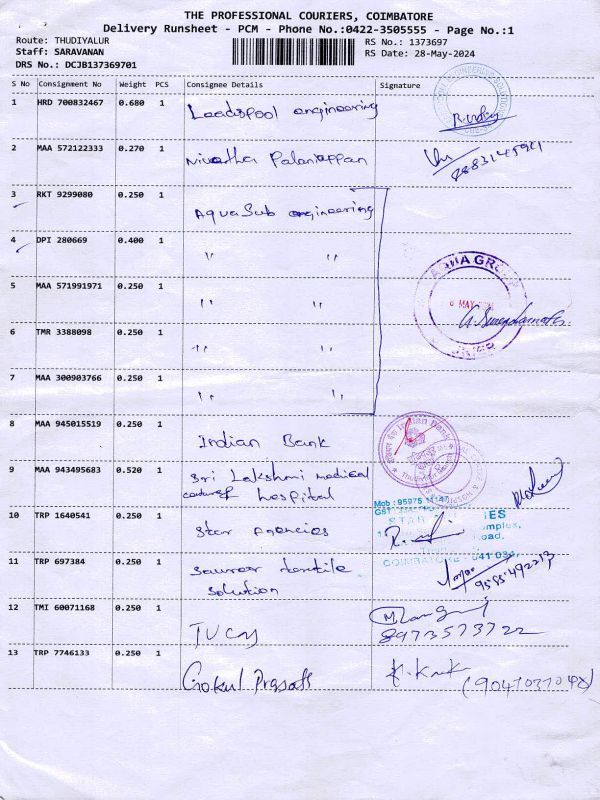 THE PROFESSIONAL COURIERS, COIMBATORE
Delivery Runsheet - PCM - Phone No.:0422-3505555 - Page No.:1
Route: THUDIYALUR RS No.: 1373697
Staff: SARAVANAN RS Date: 28-May-2024
DRS No.: DCJB137369701
S No Consignment No Weight PCS Consignee Details Signature
1 HRD 700832467 0.680 1 Leadspool engineering
2 MAA 572122333 0.270 1 Nivetha Palaniappan
3 RKT 9299080 0.250 1 AquaSub engineering
4 DPI 280669 0.400 1 " "
AQUA GROUP
5 MAA 571991971 0.250 1 " "
MAY
6 TMR 3388098 0.250 1 " "
7 MAA 300903766 0.250 1 " "
8 MAA 945015519 0.250 1 Indian Bank
Indian Bank
9 MAA 943495683 0.520 1 Sri Lakshmi medical
hospital
Mob: 95975
GST
10 TRP 1640541 0.250 1 Star Agencies
STAR
Road,
COIMBATORE - 641 034
11 TRP 697384 0.250 1 textile
Solution
12 TMI 60071168 0.250 1
8973573722
13 TRP 7746133 0.250 1 Gokul Prasath
(9047037048)